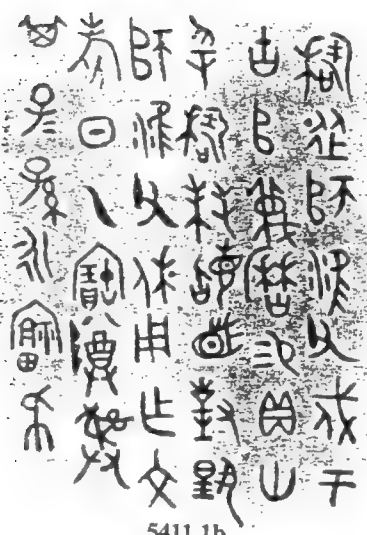 稆從師雝父戍于
古𠂤蔑曆易貝卅
寽稆拜稽首對揚
師雝父休用乍文
考日乙寶尊彝
其子子孫孫永福戊
5411.1b